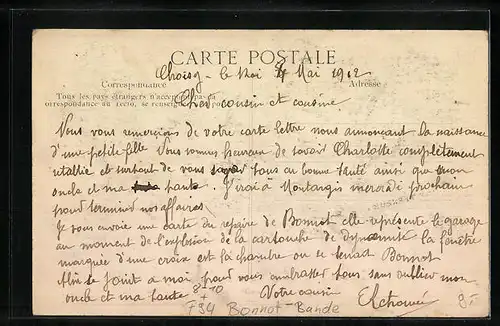 CARTE POSTALE
Choisy - le Roi 4 Mai 1912
Correspondance Adresse
Tous les pays étrangers n'acceptent pas la
correspondance au recto, se renseigner à la poste
Cher cousin et cousine
Nous vous remercions de votre carte lettre nous annoncant la naissance
d'une petite fille Nous sommes heureux de savoir Charlotte complètement
rétablie et surtout de vous tous en bonne santé ainsi que mon
oncle et ma tante. J'irai à Montargis mercredi prochain
pour terminer nos affaires
Je vous envoie une carte du repère de Bonnot elle représente le garage
au moment de l'explosion de la cartouche de dynamite la fenêtre
marquée d'une croix est la chambre ou se tenait Bonnot
Aline se joint a moi pour vous embrasser tous sans oublier mon
oncle et ma tante
Votre cousin
F94 Bonnot-Bande